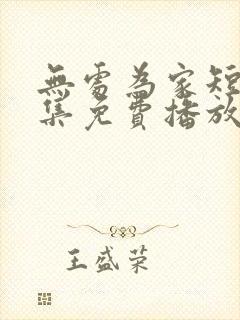 無處為家短
集免費播放
王盛荣